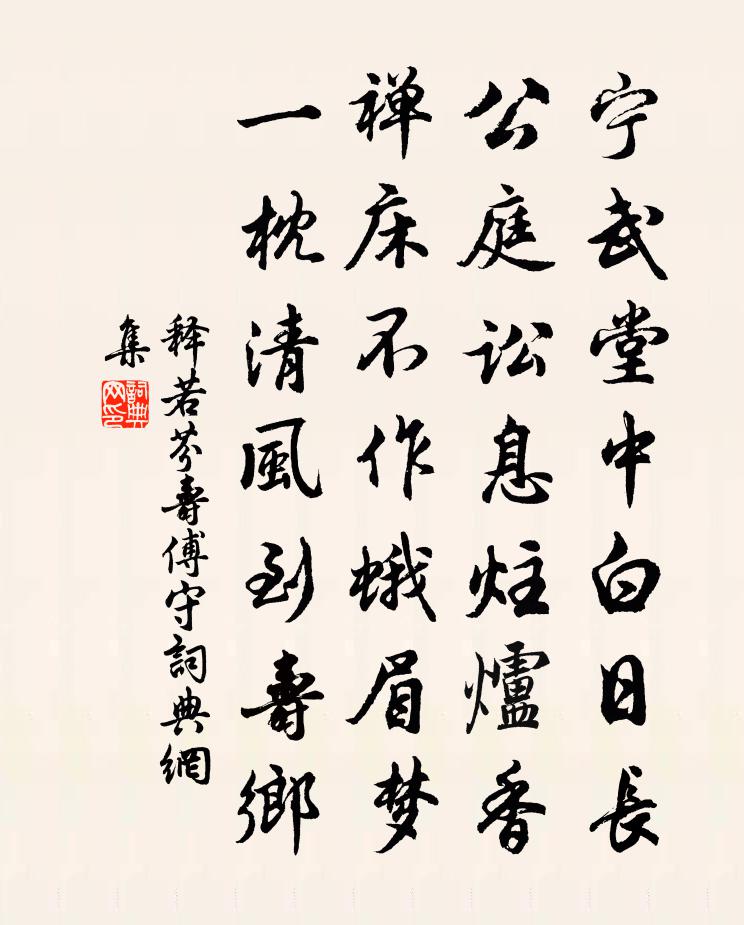 宁武堂中白日長
公庭訟息炷爐香
禅床不作蛾眉梦
一枕清風到壽鄉
释若芬壽傅守詞典網
集
詞典網印